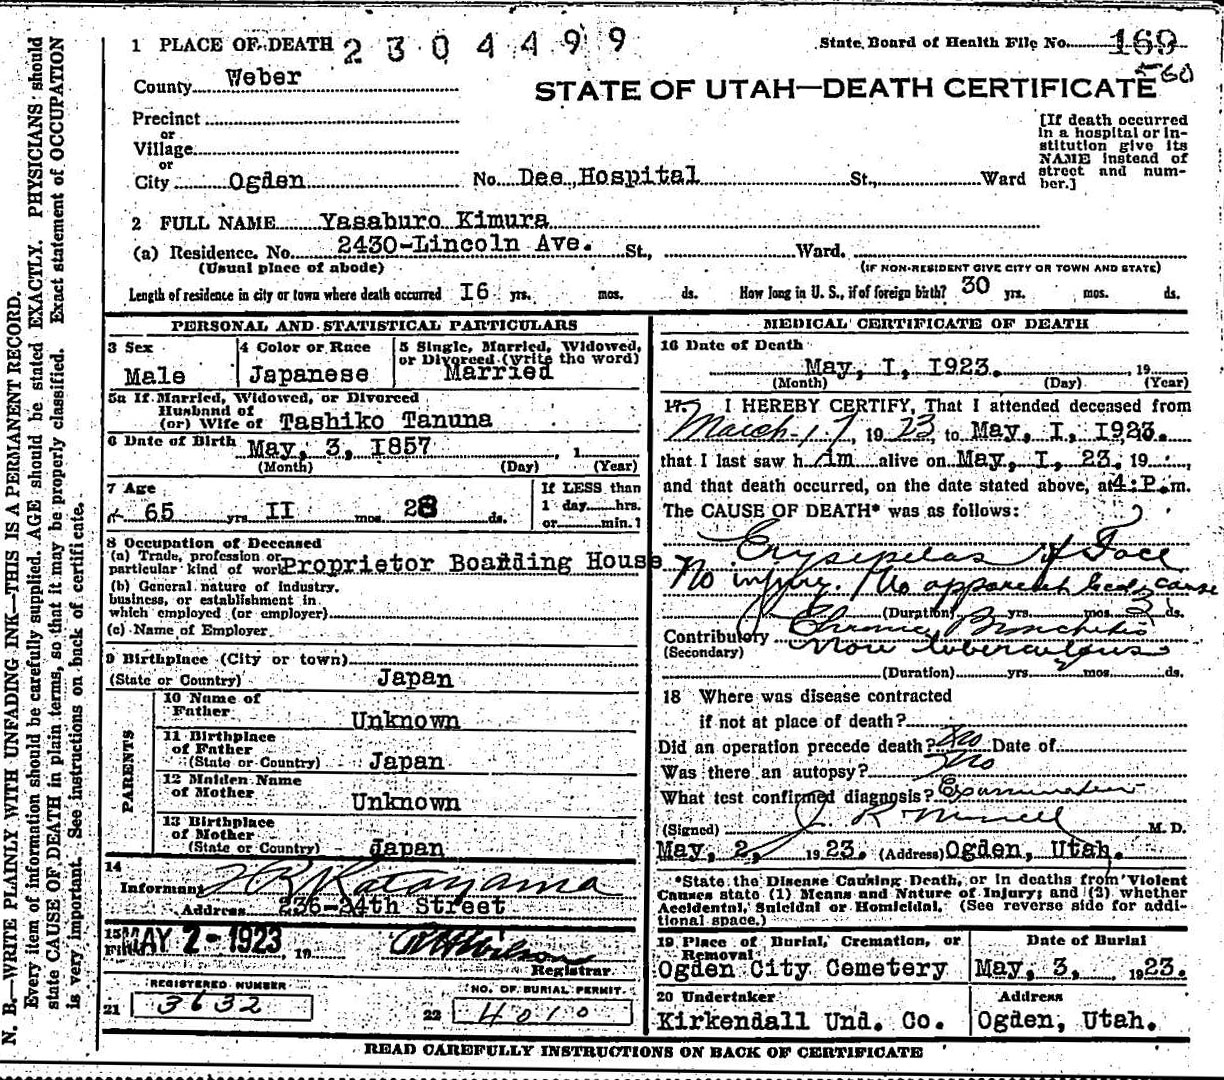 1 PLACE OF DEATH 2304499
State Board of Health File No. 169
560
County Weber
STATE OF UTAH—DEATH CERTIFICATE
Precinct
or
Village
or
City Ogden No. Dee Hospital St., Ward
[If death occurred
in a hospital or in-
stitution give its
NAME instead of
street and num-
ber.]
2 FULL NAME Yasaburo Kimura
(a) Residence. No. 2430-Lincoln Ave. St., Ward.
(Usual place of abode) (IF NON-RESIDENT GIVE CITY OR TOWN AND STATE)
Length of residence in city or town where death occurred I6 yrs. mos. ds. How long in U. S., if of foreign birth? 30 yrs. mos. ds.
PERSONAL AND STATISTICAL PARTICULARS
3 Sex
Male
4 Color or Race
Japanese
5 Single, Married, Widowed,
or Divorced (write the word)
Married
5a If Married, Widowed, or Divorced
Husband of
(or) Wife of Tashiko Tanuna
6 Date of Birth May, 3, I857 , 1
(Month) (Day) (Year)
7 Age
65 yrs. II mos. 28 ds.
If LESS than
1 day hrs.
or min.?
8 Occupation of Deceased
(a) Trade, profession or
particular kind of work Proprietor Boarding House
(b) General nature of industry,
business, or establishment in
which employed (or employer)
(c) Name of Employer
9 Birthplace (City or town)
(State or Country) Japan
PARENTS
10 Name of
Father Unknown
11 Birthplace
of Father
(State or Country) Japan
12 Maiden Name
of Mother Unknown
13 Birthplace
of Mother
(State or Country) Japan
14
Informant Katayama
Address 236-24th Street
15
Filed MAY 2 - 1923, 19
Wilson
Registrar
REGISTERED NUMBER
21 3632
NO. OF BURIAL PERMIT
22 4010
MEDICAL CERTIFICATE OF DEATH
16 Date of Death
May, I, I923. , 19
(Month) (Day) (Year)
17. I HEREBY CERTIFY, That I attended deceased from
March 17, 1923, to May, I, I923.
that I last saw him alive on May, I, 23, 19 ,
and that death occurred, on the date stated above, at 4:P.m.
The CAUSE OF DEATH* was as follows:
Erysipelas of Face
No injury. No apparent local cause
(Duration) yrs. mos. 3 ds.
Contributory Chronic Bronchitis
(Secondary) Non tuberculous
(Duration) yrs. mos. ds.
18 Where was disease contracted
if not at place of death?
Did an operation precede death? No Date of
Was there an autopsy? No
What test confirmed diagnosis? Examination
(Signed) M. D.
May, 2, 1923. (Address) Ogden, Utah.
*State the Disease Causing Death, or in deaths from Violent
Causes state (1) Means and Nature of Injury; and (2) whether
Accidental, Suicidal or Homicidal. (See reverse side for addi-
tional space.)
19 Place of Burial, Cremation, or
Removal
Ogden City Cemetery
Date of Burial
May, 3, 1923.
20 Undertaker
Kirkendall Und. Co.
Address
Ogden, Utah.
READ CAREFULLY INSTRUCTIONS ON BACK OF CERTIFICATE
N. B.—WRITE PLAINLY WITH UNFADING INK—THIS IS A PERMANENT RECORD.
Every item of information should be carefully supplied. AGE should be stated EXACTLY. PHYSICIANS should
state CAUSE OF DEATH in plain terms, so that it may be properly classified. Exact statement of OCCUPATION
is very important. See instructions on back of certificate.